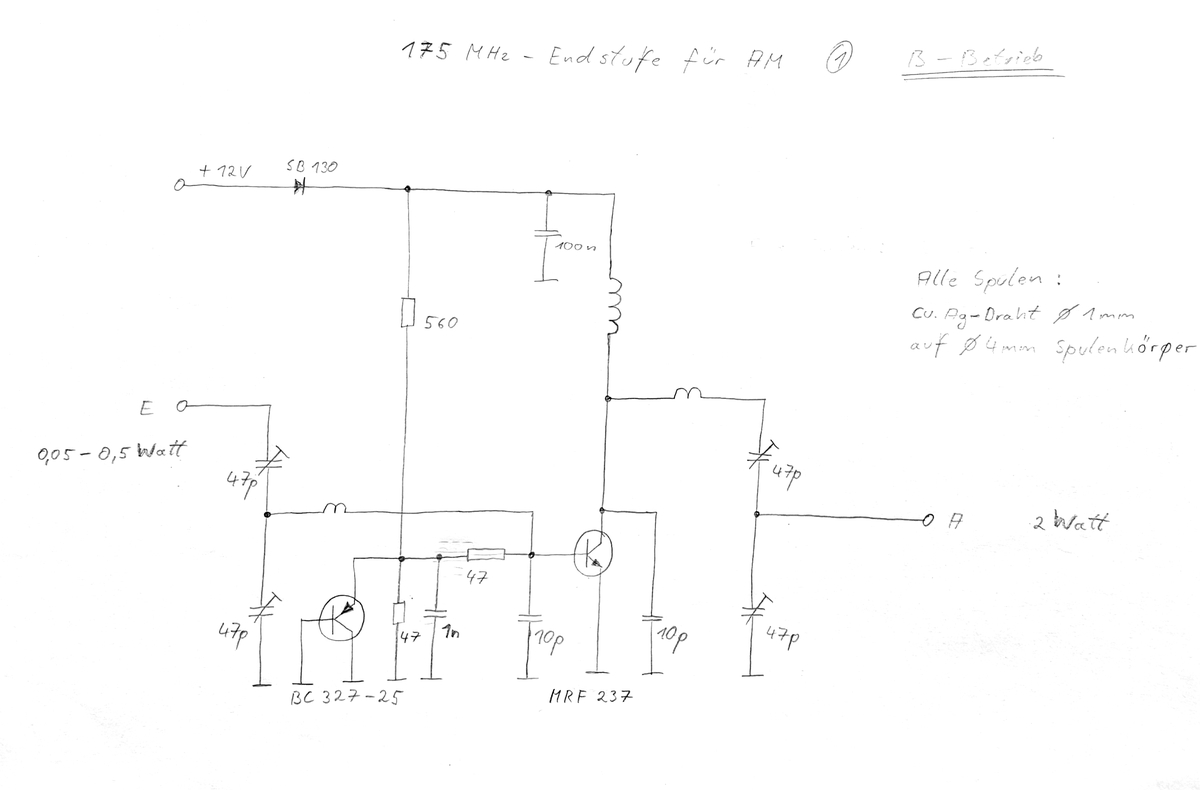 175 MHz - Endstufe für AM ① B - Betrieb
+ 12V SB 130
100n
Alle Spulen :
Cu. Ag-Draht ∅ 1mm
auf ∅ 4mm Spulenkörper
560
E
0,05 - 0,5 Watt
47p
47p
A 2 Watt
47
47p
47
1n
10p
10p
47p
BC 327-25
MRF 237